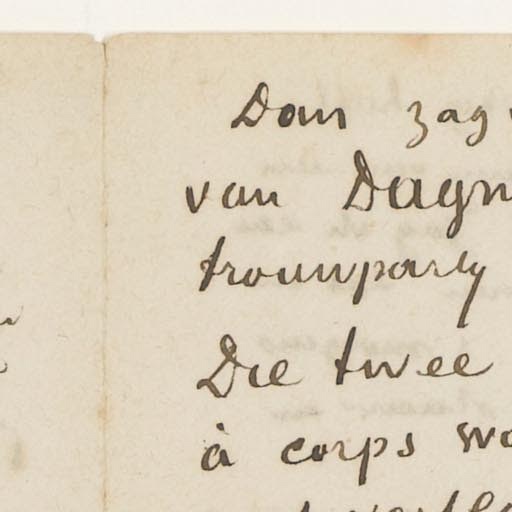 Dan zag
van Dagn
trouwparty
Die twee
à corps wa